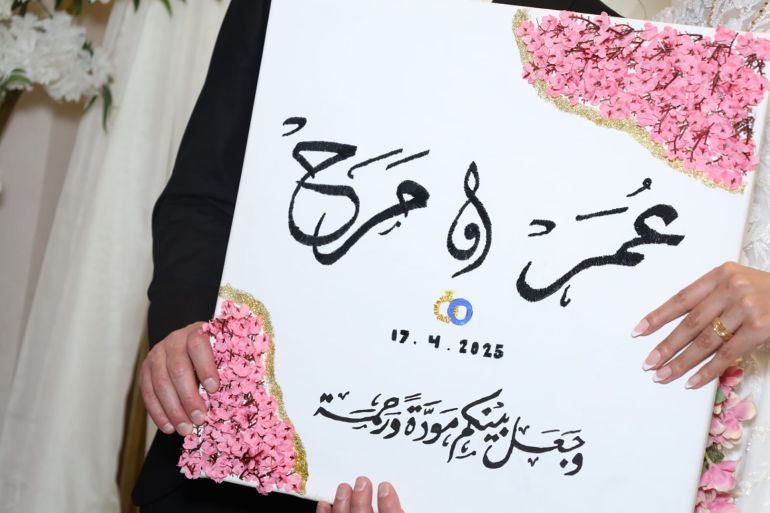 عُمَر و مَرَح
17.4.2025
وَجَعَلَ بَيْنَكُم مَوَدَّةً وَرَحْمَة